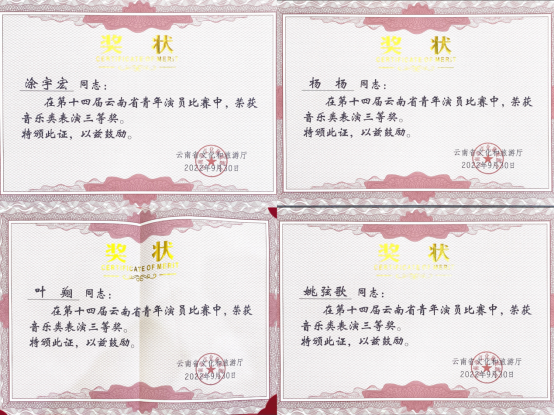 奖 状
CERTIFICATE OF MERIT
涂宇宏 同志：
在第十四届云南省青年演员比赛中，荣获
音乐类表演三等奖。
特颁此证，以兹鼓励。
云南省文化和旅游厅
2022年9月30日
奖 状
CERTIFICATE OF MERIT
杨 杨 同志：
在第十四届云南省青年演员比赛中，荣获
音乐类表演三等奖。
特颁此证，以兹鼓励。
云南省文化和旅游厅
2022年9月30日
奖 状
CERTIFICATE OF MERIT
叶 翔 同志：
在第十四届云南省青年演员比赛中，荣获
音乐类表演三等奖。
特颁此证，以兹鼓励。
云南省文化和旅游厅
2022年9月30日
奖 状
CERTIFICATE OF MERIT
姚弦歌 同志：
在第十四届云南省青年演员比赛中，荣获
音乐类表演三等奖。
特颁此证，以兹鼓励。
云南省文化和旅游厅
2022年9月30日